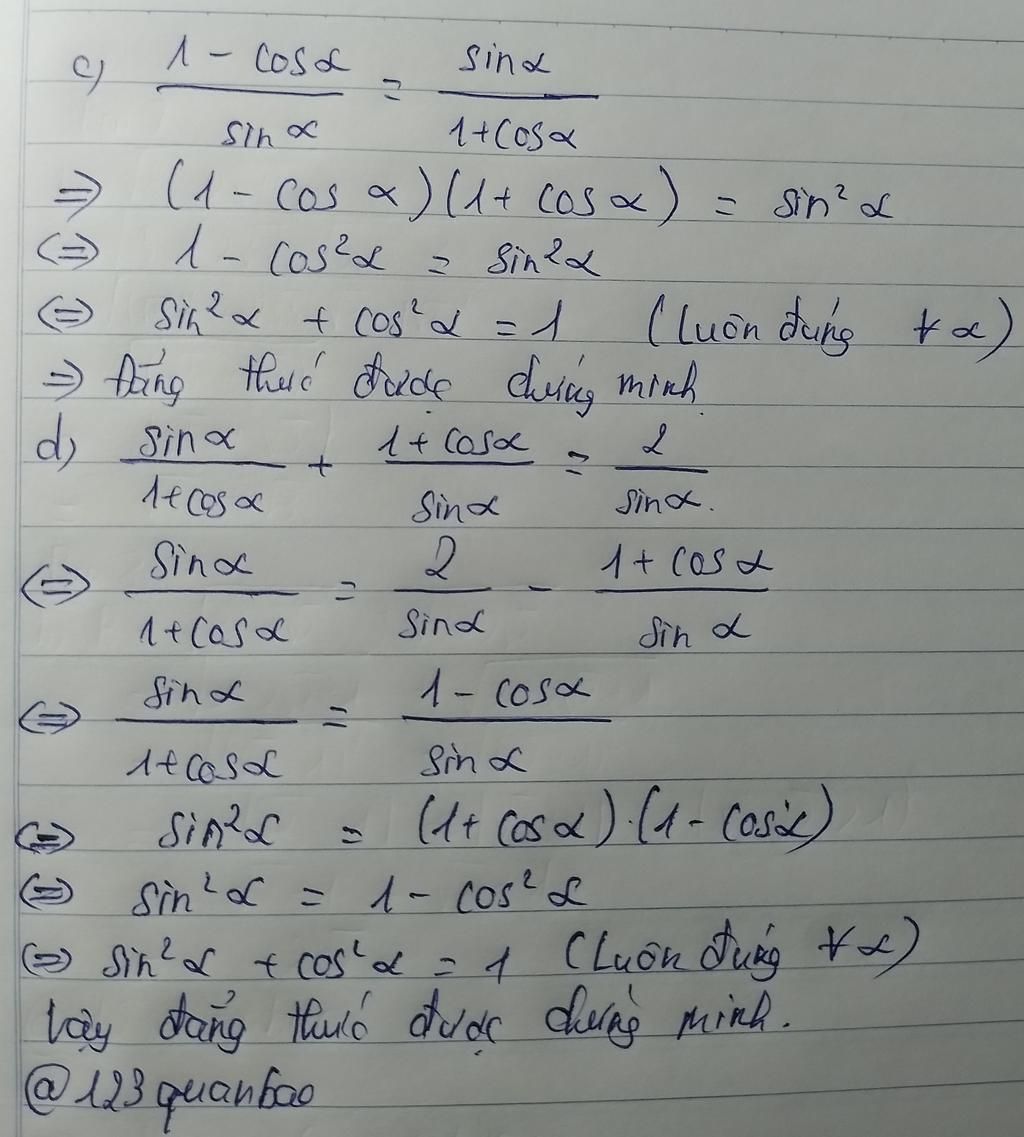 c) (1 - cosα)/(sinα) = (sinα)/(1+cosα)
⇒ (1 - cos α)(1+ cos α) = sin²α
⇔ 1 - cos²α = sin²α
⇔ sin²α + cos²α = 1 (Luôn đúng ∀ α)
⇒ Đẳng thức được chứng minh
d) (sinα)/(1+cosα) + (1+cosα)/(sinα) = 2/(sinα).
⇔ (sinα)/(1+cosα) = 2/(sinα) - (1+cosα)/(sin α)
⇔ (sinα)/(1+cosα) = (1 - cosα)/(sinα)
⇔ sin²α = (1+cosα).(1-cosα)
⇔ sin²α = 1 - cos²α
⇔ sin²α + cos²α = 1 (Luôn đúng ∀α)
Vậy đẳng thức được chứng minh.
@123quanbao